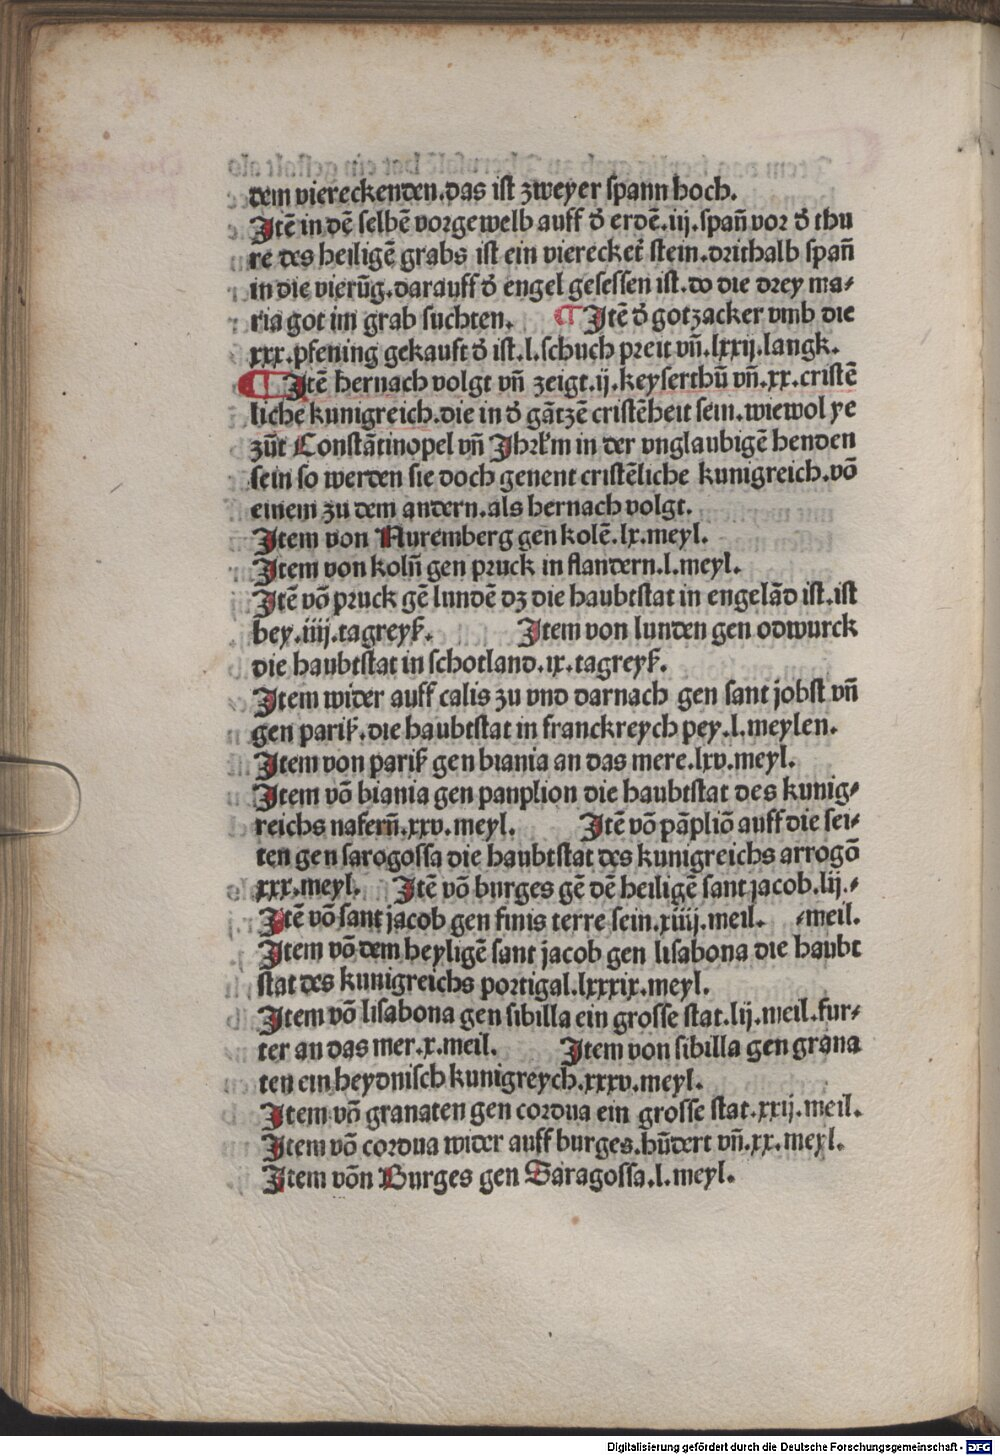 dem viereckenden.das ist zweyer spann hoch.
Jtē in dē selbē vorgewelb auff d̕ erdē.iij.span̄ vor d̕ thu
re des heiligē grabs ist ein vierecket̄ stein.drithalb span̄
in die vierūg.darauff d̕ engel gesessen ist.do die drey ma⸗
ria got im grab suchten. ¶ Jtē d̕ gotzacker vmb die
xxx.pfening gekauft d̕ ist.l.schuch preit vn̄.lxxij.langk.
¶ Jtē hernach volgt vn̄ zeigt.ij.keyserthū vn̄.xx.cristē
liche kunigreich.die in d̕ gātzē cristēheit sein.wiewol ye
zūt Constātinopel vn̄ Jhrłm in der vnglaubigē henden
sein so werden sie doch genent cristēliche kunigreich.vō
einem zu dem andern.als hernach volgt.
Jtem von Nuremberg gen kolē.lx.meyl.
Jtem von koln̄ gen pruck in flandern.l.meyl.
Jtē vō pruck gē lundē dz die haubtstat in engelād ist.ist
bey.iiij.tagreyß. Jtem von lunden gen odwurck
die haubtstat in schotland.ix.tagreyß.
Jtem wider auff calis zu vnd darnach gen sant jobst vn̄
gen pariß.die haubtstat in franckreych pey.l.meylen.
Jtem von pariß gen biania an das mere.lxv.meyl.
Jtem vō biania gen panplion die haubtstat des kunig⸗
reichs nafern̄.xxv.meyl. Jtē vō pāpliō auff die sei⸗
ten gen saragossa die haubtstat des kunigreichs arrogō
xxx.meyl. Jtē vō burges gē dē heiligē sant jacob.lij.⸗
Jtē vō sant jacob gen finis terre sein.xiiij.meil. ⸗meil.
Jtem vō dem heyligē sant jacob gen lisabona die haubt
stat des kunigreichs portigal.lxxxix.meyl.
Jtem vō lisabona gen sibilla ein grosse stat.lij.meil.fur⸗
ter an das mer.x.meil. Jtem von sibilla gen grana
ten ein heydnisch kunigreych.xxxv.meyl.
Jtem vō granaten gen cordua ein grosse stat.xxij.meil.
Jtem vō cordua wider auff burges.hūdert vn̄.xx.meyl.
Jtem vōn Burges gen Saragossa.l.meyl.
Digitalisierung gefördert durch die Deutsche Forschungsgemeinschaft - DFG